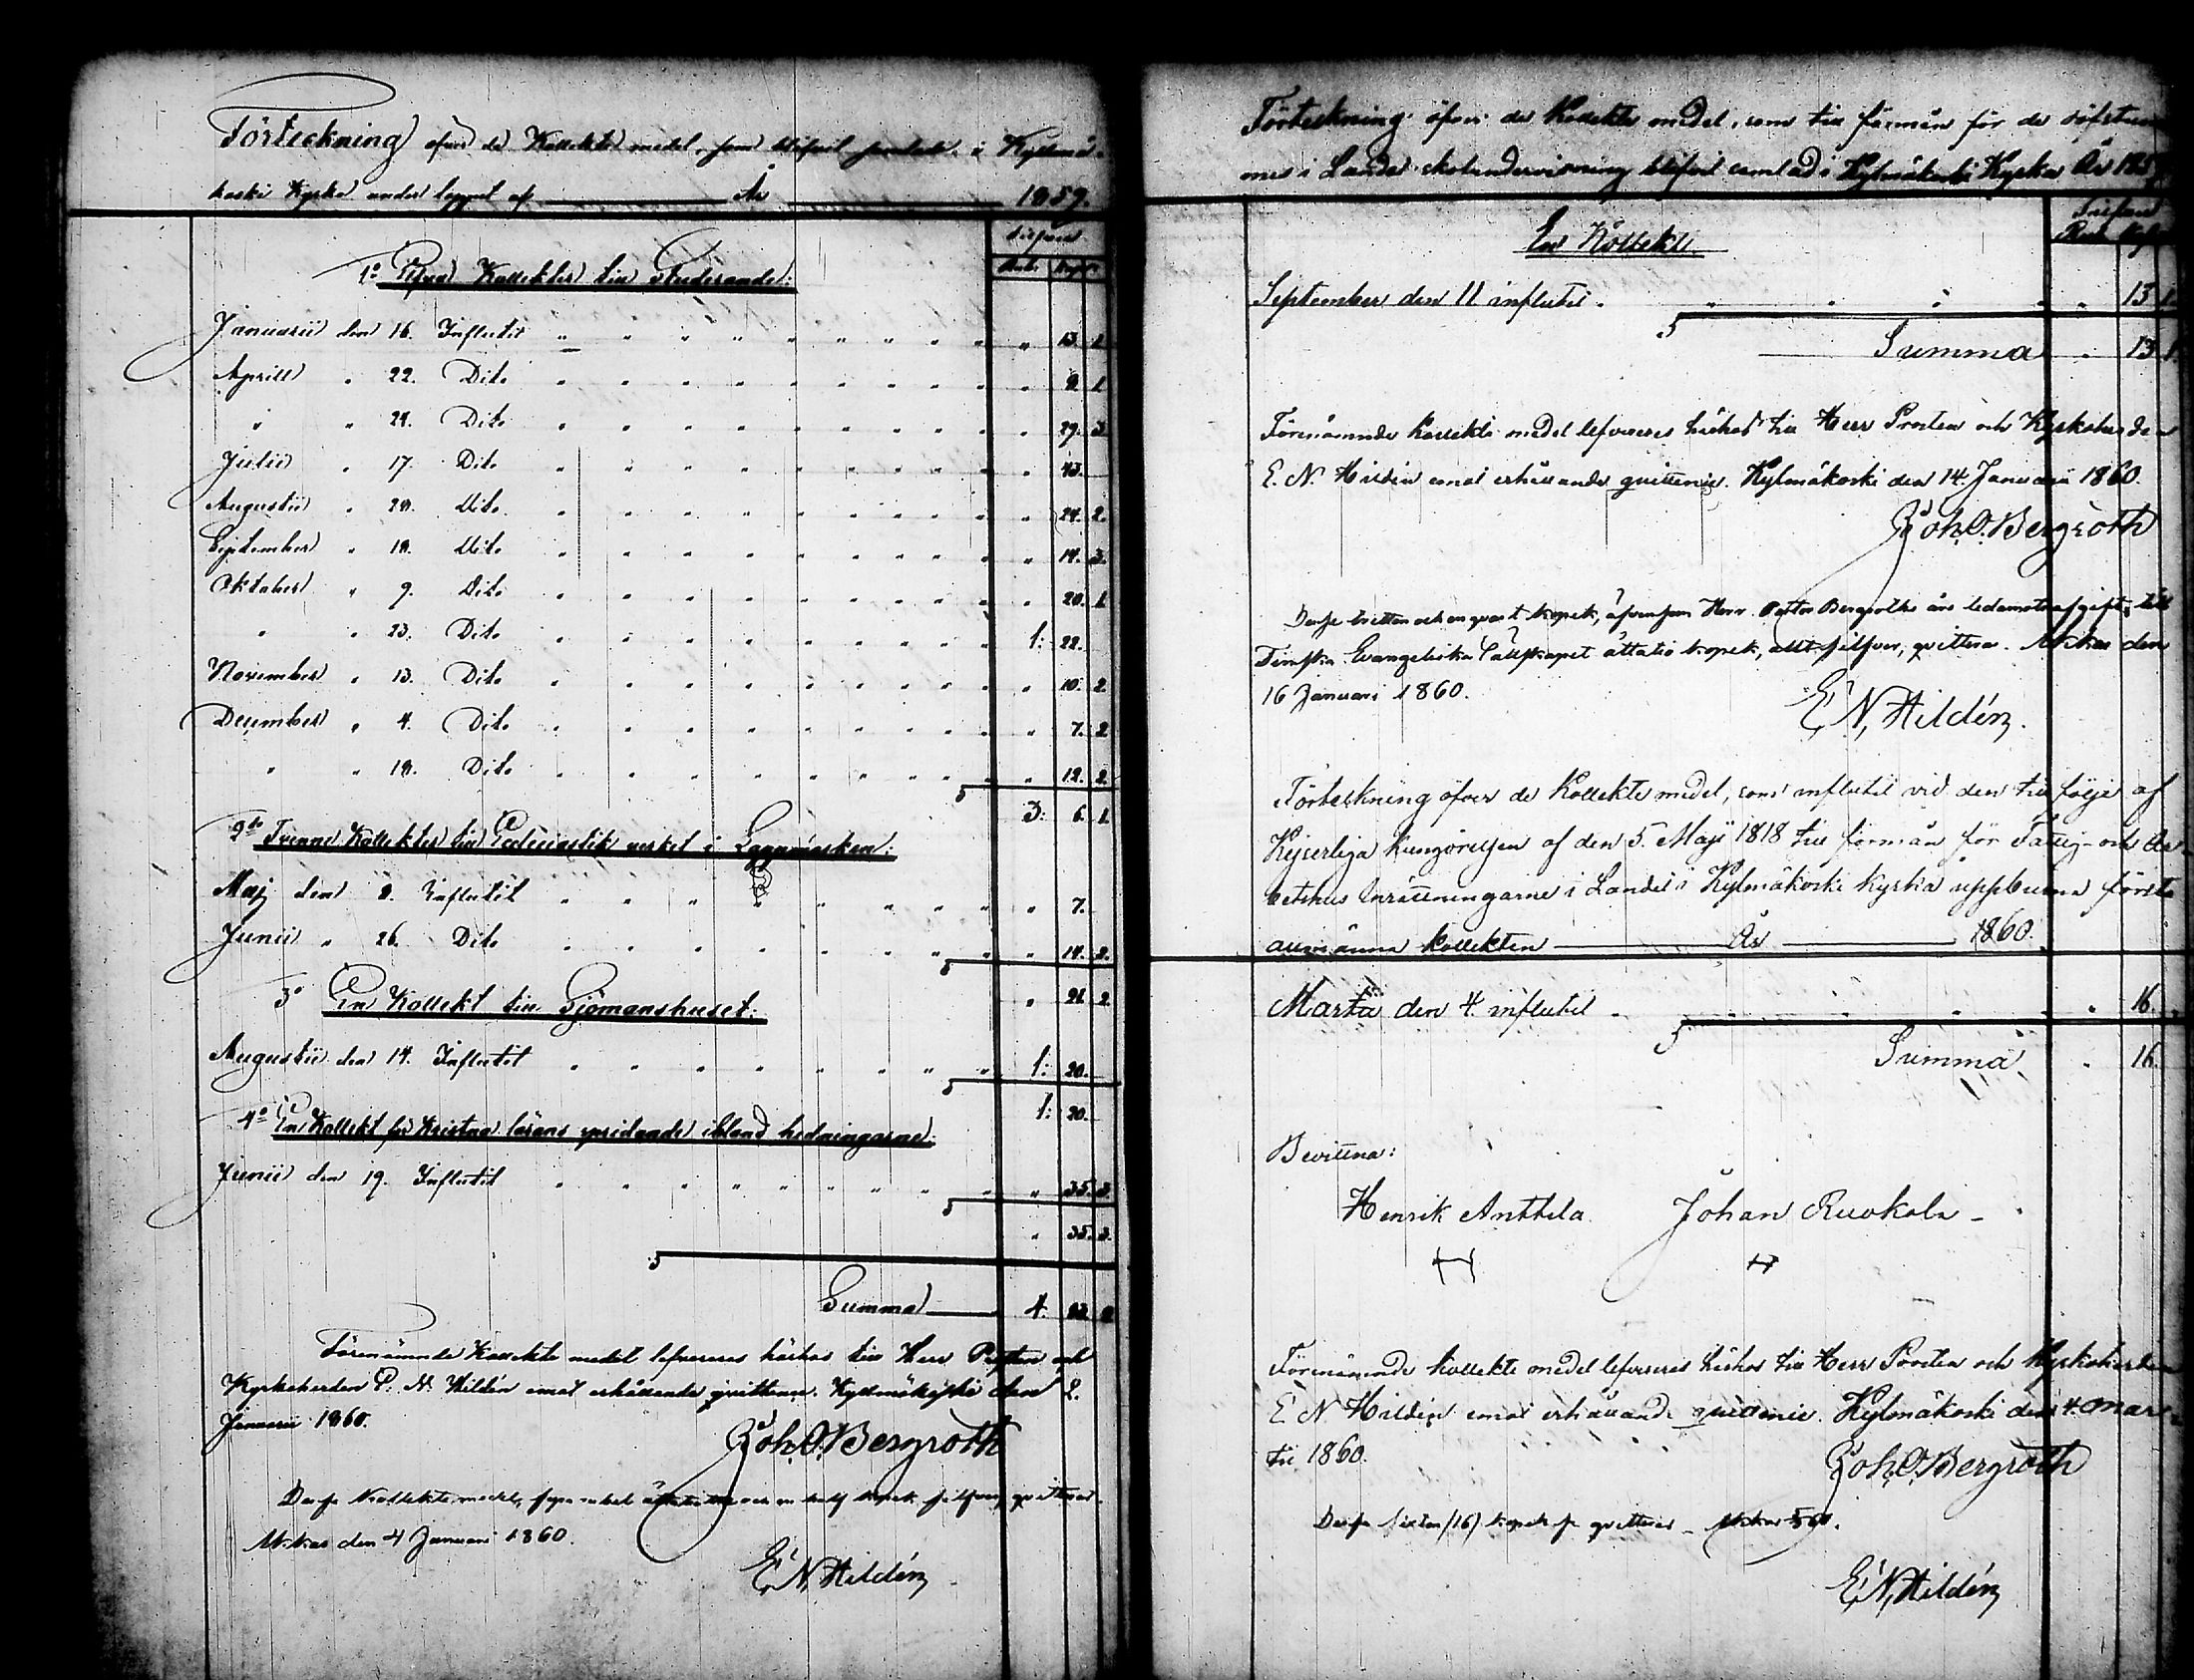 Förteckning öfver de Kollekte medel, som blifvit samlade i Kylmä-
koski Kyrka under loppet af År 1859.
Silfver
Rub. Kop.
1º Elfva Kollekter till studerande:
Januarii den 16. Influtit " 13. 1
Aprill " 22. Dito " 9. 1
" " 24. Dito " 29. 3
Julii " 17. Dito " 43.
Augustii " 28. Dito " 24. 2.
September " 18. Dito " 14. 3.
Oktober " 9. Dito " 20. 1.
" " 23. Dito 1: 22.
November " 13. Dito " 10. 2
December " 4. Dito " 7. 2
" " 18. Dito " 12. 2.
3: 6. 1.
2do Tvenne Kollekter till Ecclesiastik verket i Lappmarken:
Maj den 8. Influtit " 7.
Junii " 26. Dito " 14. 2.
" 21. 2
3º En Kollekt till Sjömanshuset:
Augustii den 14. Influtit 1: 20.
1: 20.
4º En Kollekt för Kristna lärans spridande ibland hedningarne:
Junii den 19. Influtit " 35. 3.
" 35. 3.
Summa 4. 2
Förenämnde Kollekte medel lefvereres härhos till Herr Prosten och
Kyrkoherden E. N. Hildén emot erhållande qvittence. Kylmäkoski den 2.
Januarii 1860.
Joh. O. Bergroth
Desse Kollekte medel, en half kopek silfver, qvitteras.
Akkas den 4 Januari 1860.
E. N. Hildén
Förteckning öfver de Kollekte medel, som till förmån för de döfstum-
mes i Landet skolundervisning blifvit samlad i Kylmäkoski Kyrka År 1859
Silfver
Rub. Kop.
En Kollekt
September den 11 influtit " 13 1.
Summa " 13 1.
Förenämnde Kollekte medel lefvereres härhos till Herr Prosten och Kyrkoherden
E. N. Hildén emot erhållande qvittence. Kylmäkoski den 14. Januarii 1860.
Joh. O. Bergroth
Desse tretton och en qvart kopek, äfvensom Herr Pastor Bergroths års ledamotsafgift till
Finska Evangeliska Sällskapet åttatio kopek, allt silfver, qvitteras. Akkas den
16 Januari 1860.
E. N. Hildén.
Förteckning öfver de Kollekte medel, som influtit vid den till följe af
Kejserliga Kungörelsen af den 5. Maji 1818 till förmån för Fattig- och Ar-
betshus Inrättningarne i Landet i Kylmäkoski kyrka uppburna första
allmänna kollekten År 1860.
Martii den 4. influtit " 16.
Summa " 16.
Bevittna:
Henrik Anttila Johan Ruokola
Förenämnde kollekte medel lefvereres härhos till Herr Prosten och Kyrkoherden
E. N. Hildén emot erhållande qvittence. Kylmäkoski den 4. Mar-
tii 1860.
Joh. O. Bergroth
Desse sexton (16) kopek s. qvitteras
E. N. Hildén